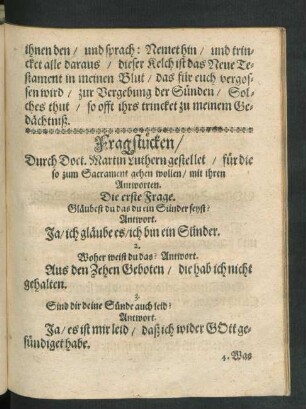 ihnen den / und sprach: Nemet hin / und trin-
cket alle daraus / dieser Kelch ist das Neue Te-
stament in meinen Blut / das für euch vergos-
sen wird / zur Vergebung der Sünden / Sol-
ches thut / so offt ihrs trincket zu meinem Ge-
dächtnuß.
Fragstücken /
Durch Doct. Martin Luthern gestellet / für die
so zum Sacrament gehen wollen / mit ihren
Antworten.
Die erste Frage.
Gläubest du das du ein Sünder seyst?
Antwort.
Ja / ich gläube es / ich bin ein Sünder.
2.
Woher weist du das? Antwort.
Aus den Zehen Geboten / die hab ich nicht
gehalten.
3.
Sind dir deine Sünde auch leid?
Antwort.
Ja / es ist mir leid / daß ich wider GOtt ge-
sündiget habe.
4. Was